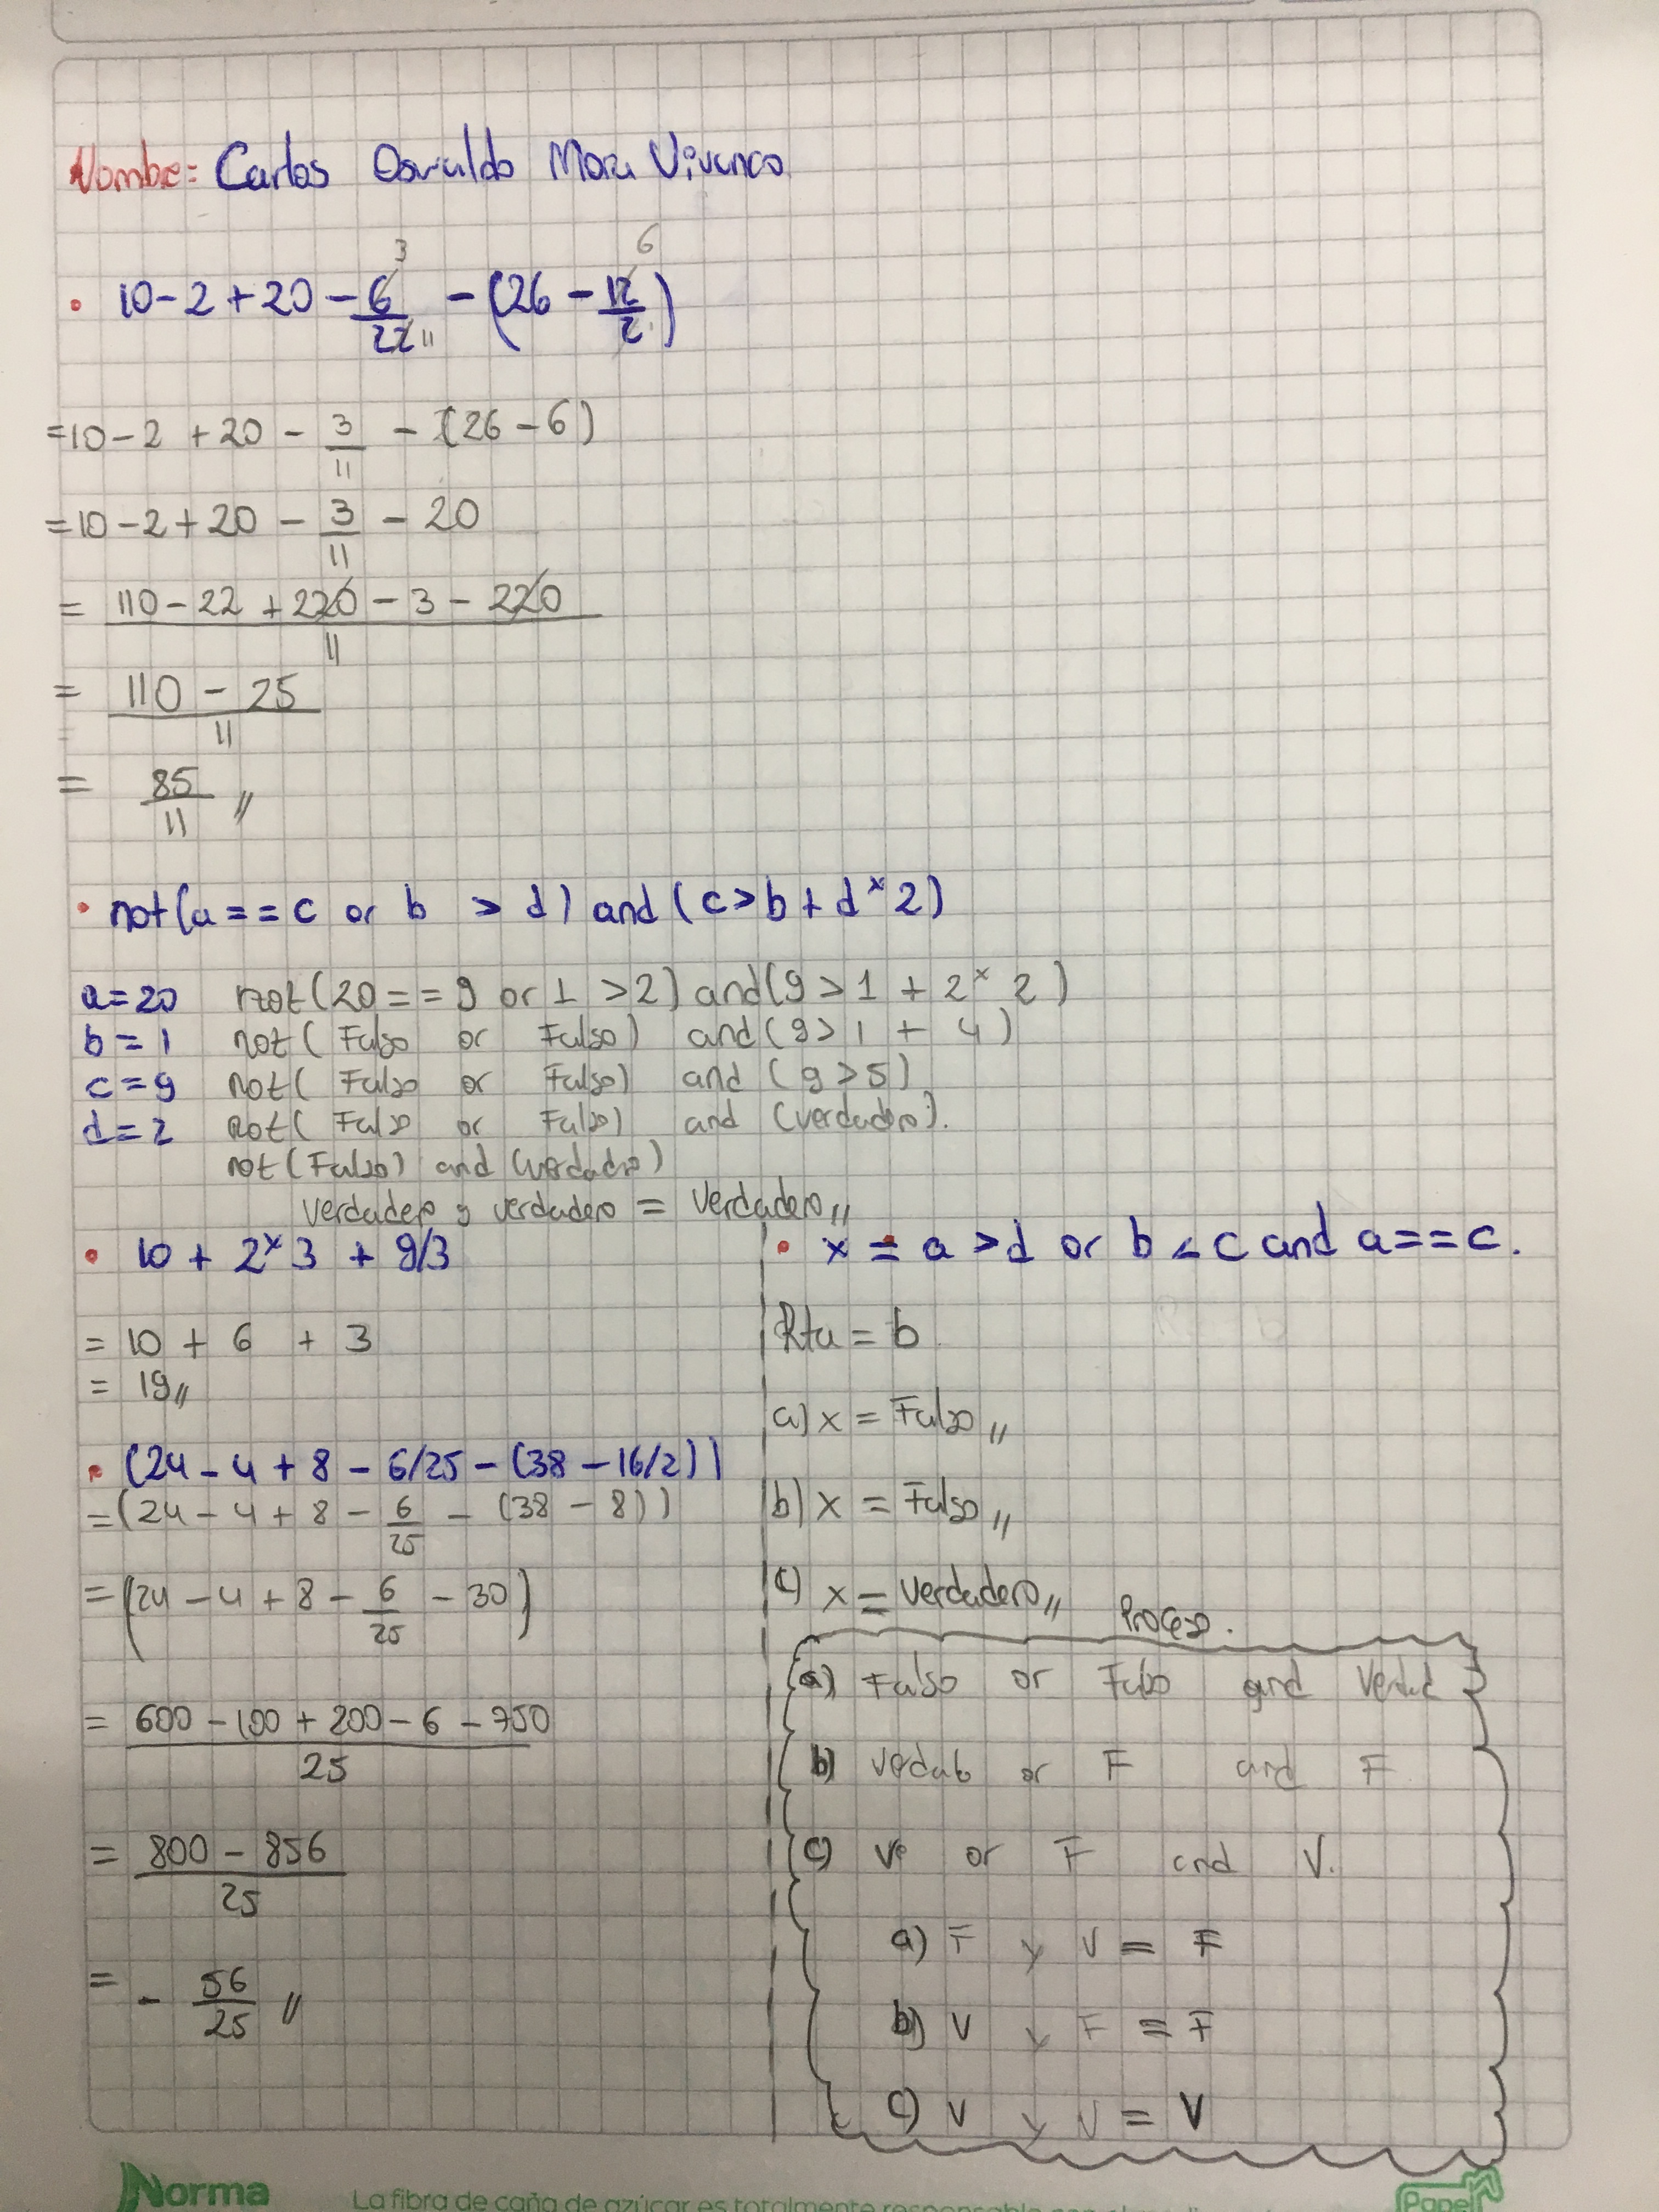 Nombre: Carlos Osvaldo Mora Vivanco
• 10 - 2 + 20 - 6/22 - (26 - 12/2)
3 11 6
= 10 - 2 + 20 - 3/11 - (26 - 6)
= 10 - 2 + 20 - 3/11 - 20
= (110 - 22 + 220 - 3 - 220)/11
= (110 - 25)/11
= 85/11 //
• not(a == c or b > d) and (c > b + d * 2)
a = 20 not(20 == 9 or 1 > 2) and (9 > 1 + 2 * 2)
b = 1 not( Falso or Falso) and (9 > 1 + 4)
c = 9 not( Falso or Falso) and (9 > 5)
d = 2 not( Falso or Falso) and (verdadero).
not(Falso) and (verdadero)
verdadero y verdadero = verdadero //
• 10 + 2 * 3 + 9/3
= 10 + 6 + 3
= 19 //
• (24 - 4 + 8 - 6/25 - (38 - 16/2))
= (24 - 4 + 8 - 6/25 - (38 - 8))
= (24 - 4 + 8 - 6/25 - 30)
= (600 - 100 + 200 - 6 - 750)/25
= (800 - 856)/25
= - 56/25 //
• x = a > d or b < c and a == c.
Rta = b
a) x = Falso //
b) x = Falso //
c) x = verdadero //
Proceso.
a) Falso or Falso and Verdad
b) Verdad or F and F
c) Ve or F and V.
a) F y V = F
b) V y F = F
c) V y V = V
Norma
La fibra de caña de azúcar es totalmente
Papel